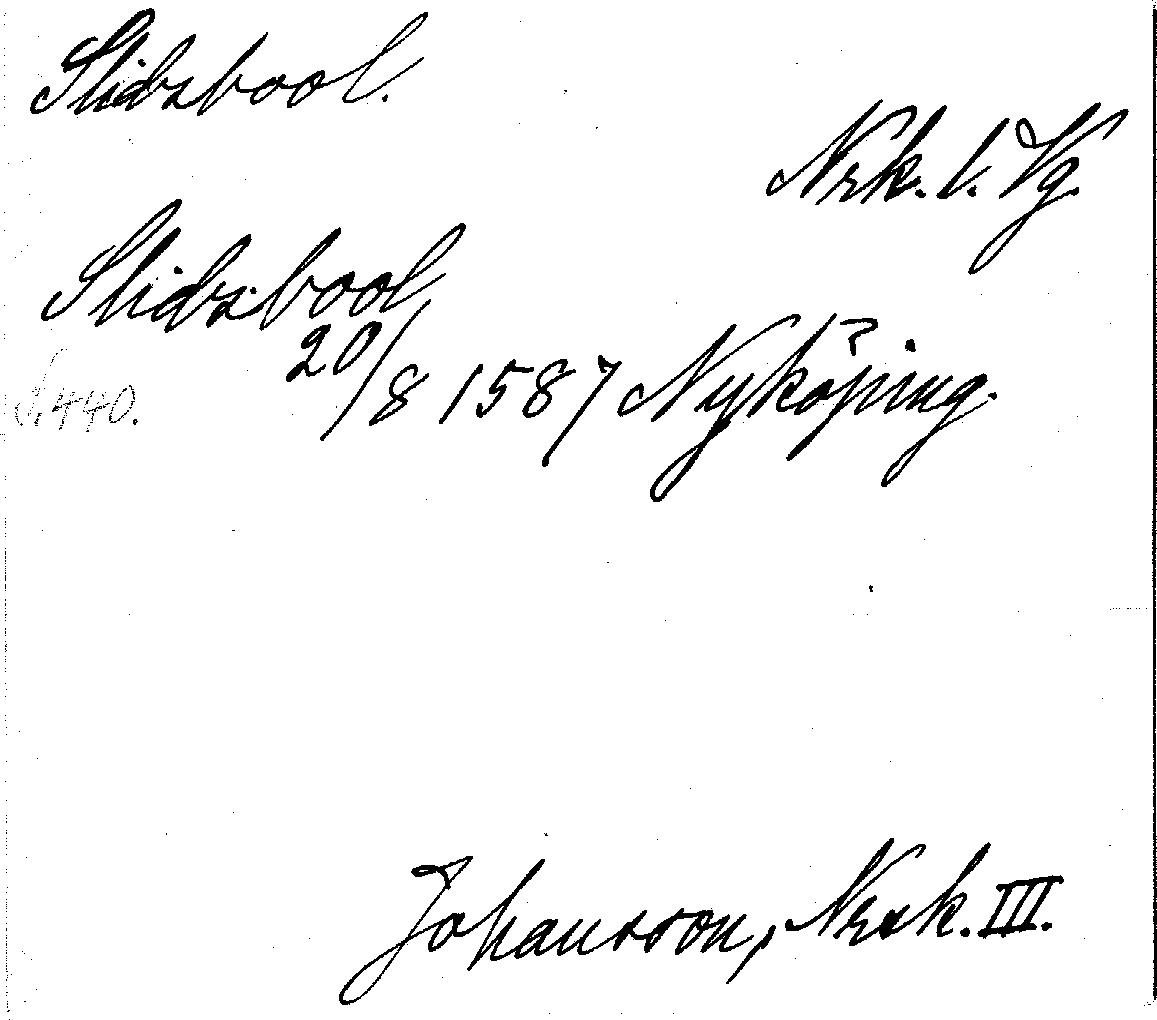 Slidsbool.
Nrk. l. Vg.
Slidsbool
20/8 1587 Nyköping.
S. 440.
Johansson, Nrsk. III.